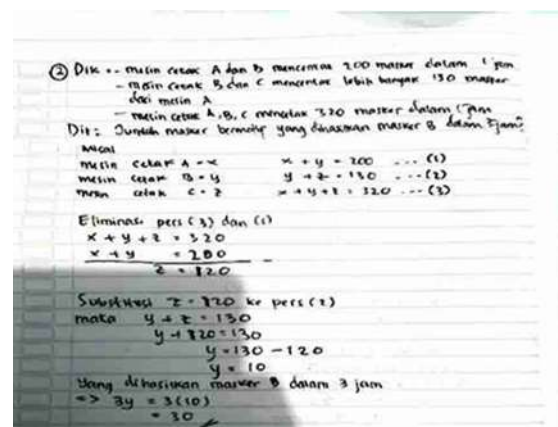 ② Dik :- mesin cetak A dan B mencetak 200 masker dalam 1 jam
- mesin cetak B dan C mencetak lebih banyak 130 masker
dari mesin A
- mesin cetak A, B, C mencetak 320 masker dalam 1 jam
Dit : Jumlah masker bermotif yang dihasilkan masker B dalam 3 jam?
Misal
mesin cetak A = x x + y = 200 ... (1)
mesin cetak B = y y + z = 130 ... (2)
mesin cetak C = z x + y + z = 320 ... (3)
Eliminasi pers (3) dan (1)
x + y + z = 320
x + y = 200 -
z = 120
Substitusi z = 120 ke pers (2)
maka y + z = 130
y + 120 = 130
y = 130 - 120
y = 10
Yang dihasilkan masker B dalam 3 jam
=> 3y = 3(10)
= 30